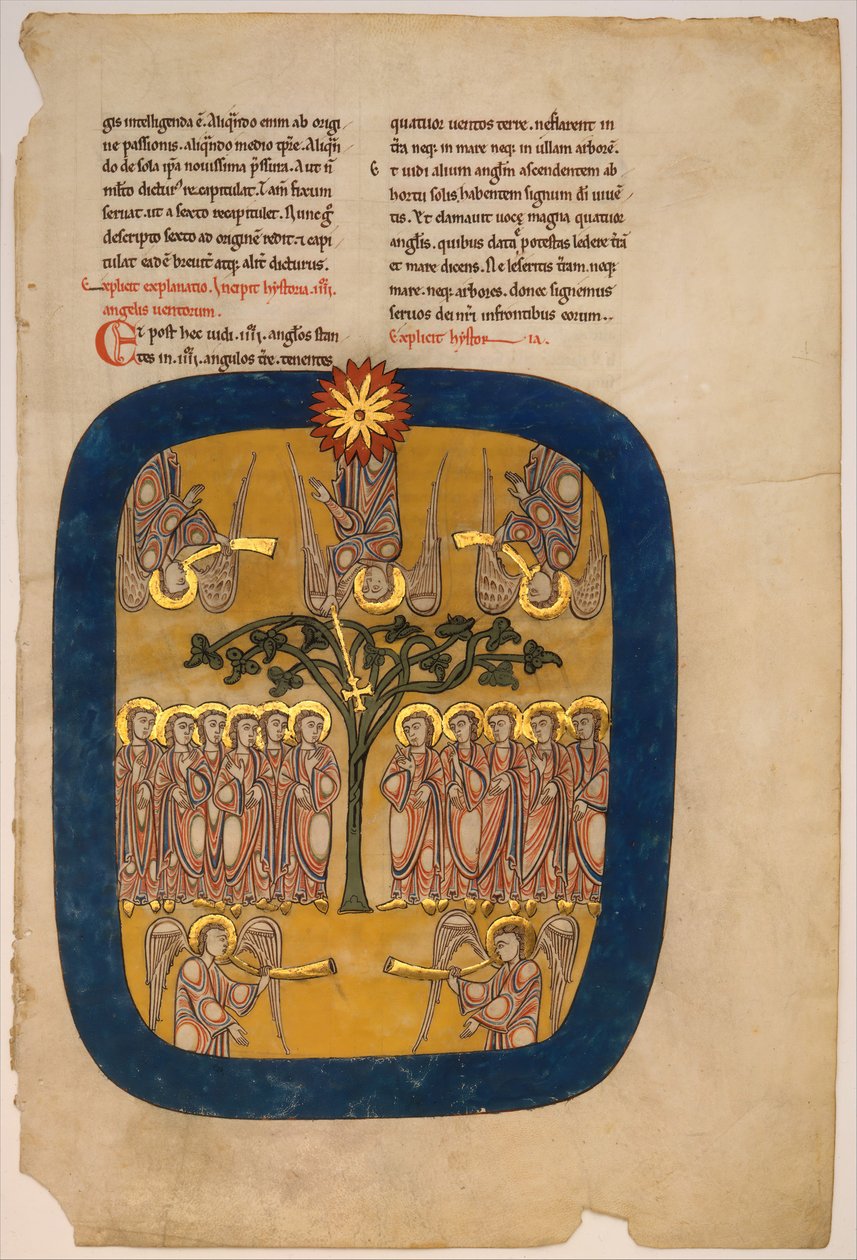 gis intelligenda ē. Aliqn̄do enim ab origi
ne passionis. aliqn̄do medio tp̄re. Aliqn̄
do de sola ip̄a nouissima p̄ssura. Aut n̄
ml̄to dictur᾿ recapitulat. I am fixum
seruat. ut a sexto recapitulet. Nunc gͦ
descripto sexto ad originē redit. ⁊ capi
tulat eadē breuit̄ atq; alit̄ dicturus.
Explicit explanatio. Incipit hystoria. iiii.
angelis uentorum.
Et post hec uidi. iiii. angl̄os stan
tes in. iiii. angulos t̄re. tenentes
quatuor uentos terre. ne flarent in
t̄ra neq; in mare neq; in ullam arborē.
Et uidi alium angl̄m ascendentem ab
hortu solis, habentem signum dī uiuē
tis. Et clamauit uocę magna quatuor
angl̄is. quibus data ē potestas ledere t̄rā
et mare dicens. Ne leseritis t̄ram. neq;
mare. neq; arbores. donec signemus
seruos dei nr̄i in frontibus eorum.
Explicit hystoria.